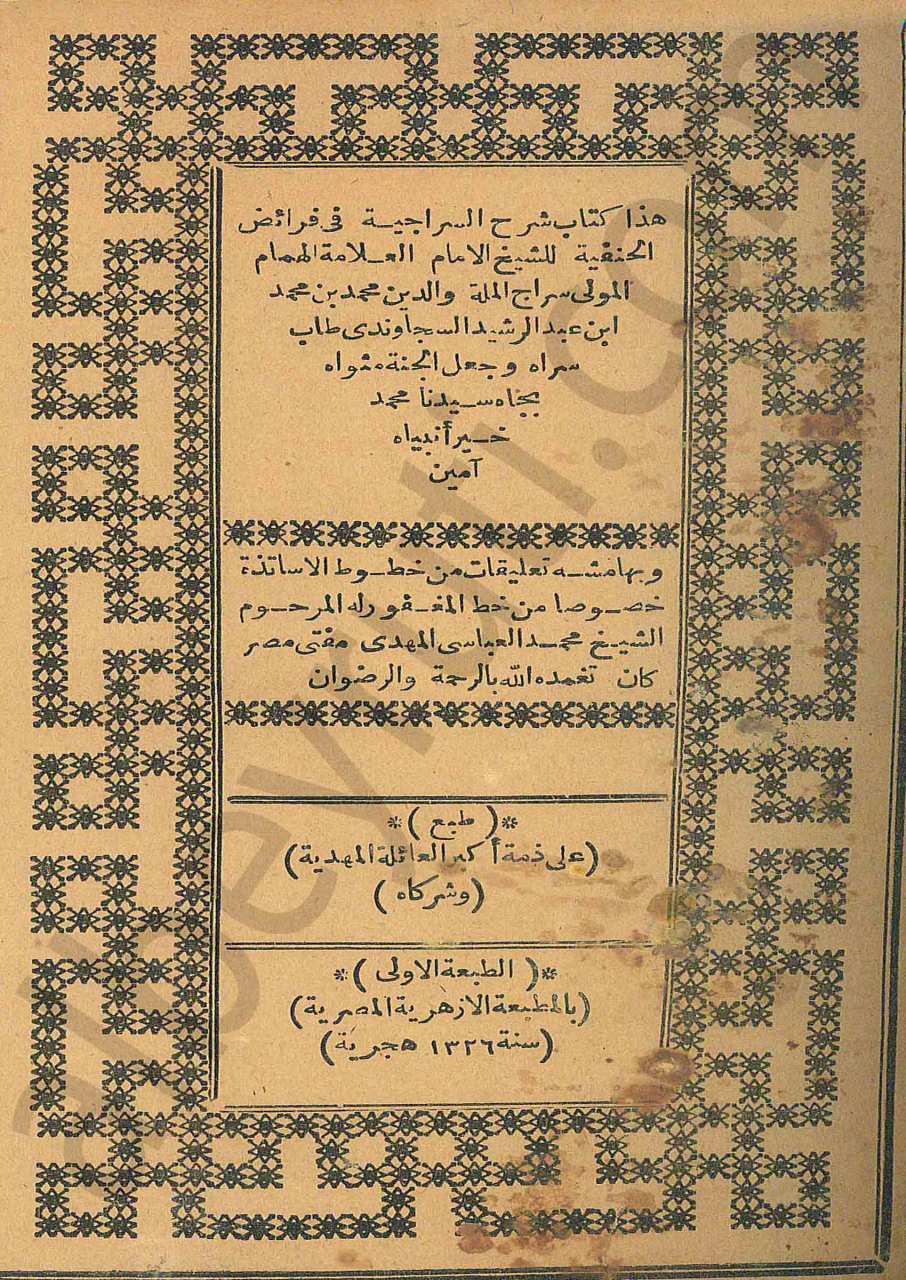 هذا كتاب شرح السراجية فى فرائض
الحنفية للشيخ الامام العلامة الهمام
المولى سراج الملة والدين محمد بن محمد
ابن عبد الرشيد السجاوندى طاب
سراه وجعل الجنة مثواه
بجاه سيدنا محمد
خير أنبياه
آمين
وبهامشه تعليقات من خطوط الاساتذة
خصوصا من خط المغفور له المرحوم
الشيخ محمد العباسى المهدى مفتى مصر
كان تغمده الله بالرحمة والرضوان
*( طبع )*
(على ذمة أكبر العائلة المهدية)
(وشركاه)
*( الطبعة الاولى )*
(بالمطبعة الازهرية المصرية)
(سنة ١٣٢٦ هجرية)
albeyruti.com